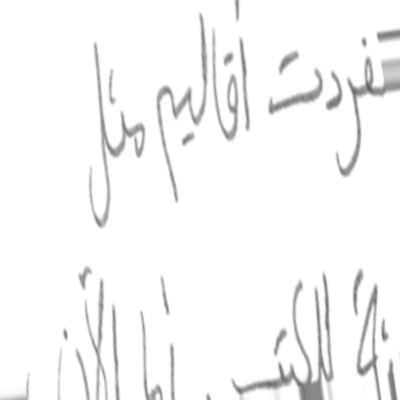 تفردت أقاليم مثل
للكتب. أما الآن